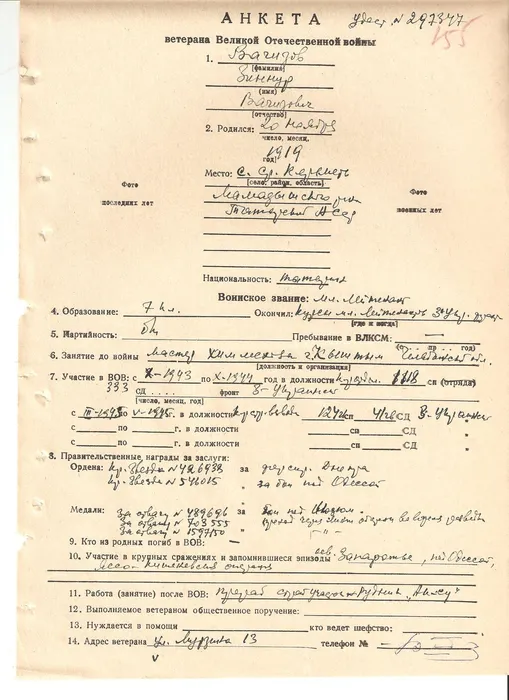 АНКЕТА Удост. N 297347
155
ветерана Великой Отечественной войны
1. Вагизов
(фамилия)
Зиннур
(имя)
Вагизович
(отчество)
2. Родился: 20 ноября
число, месяц,
1919
год)
Место: с. Ср. Кирмень
(село, район, область)
Мамадышского р-на
Татарской АССР
Фото
последних лет
Фото
военных лет
Национальность: татарин
Воинское звание: мл. Лейтенант
4. Образование: 7 кл. Окончил: Курсы мл. Лейтенантов 3 Укр.
(где и когда)
5. Партийность: б/п Пребывание в ВЛКСМ: —
(г. пр. — год)
6. Занятие до войны мастер Химлесхоза г. Кыштым Челябинской обл.
(должность и организация)
7. Участие в ВОВ: с X-1943 по X-1944 год в должности 1118 сп (отряда)
333 СД фронт 3-Украинск
(число, месяц, год)
с III-1945 по V-1945г. в должности 124 сп 41 СД 3-Украинск
с по г. в должности сп СД "
с по г. в должности сп СД "
8. Правительственные, награды за заслуги:
Ордена: Кр. Звезды N 4269 за Днепра
Кр. Звезда N 571015 за бои под Одессой
Медали: За отвагу N 489696 за бои под
За отвагу N 703555
За отвагу N 159750 — " —
9. Кто из родных погиб в ВОВ: —
10. Участие в крупных сражениях и запомнившиеся эпизоды осв. Запорожье, под Одессой,
Ясско-Кишиневская операция
11. Работа (занятие) после ВОВ: прораб стройучастка Рудник
12. Выполняемое ветераном общественное поручение:
13. Нуждается в помощи кто ведет шефство:
14. Адрес ветерана ул. Мурзина 13 телефон № —
v